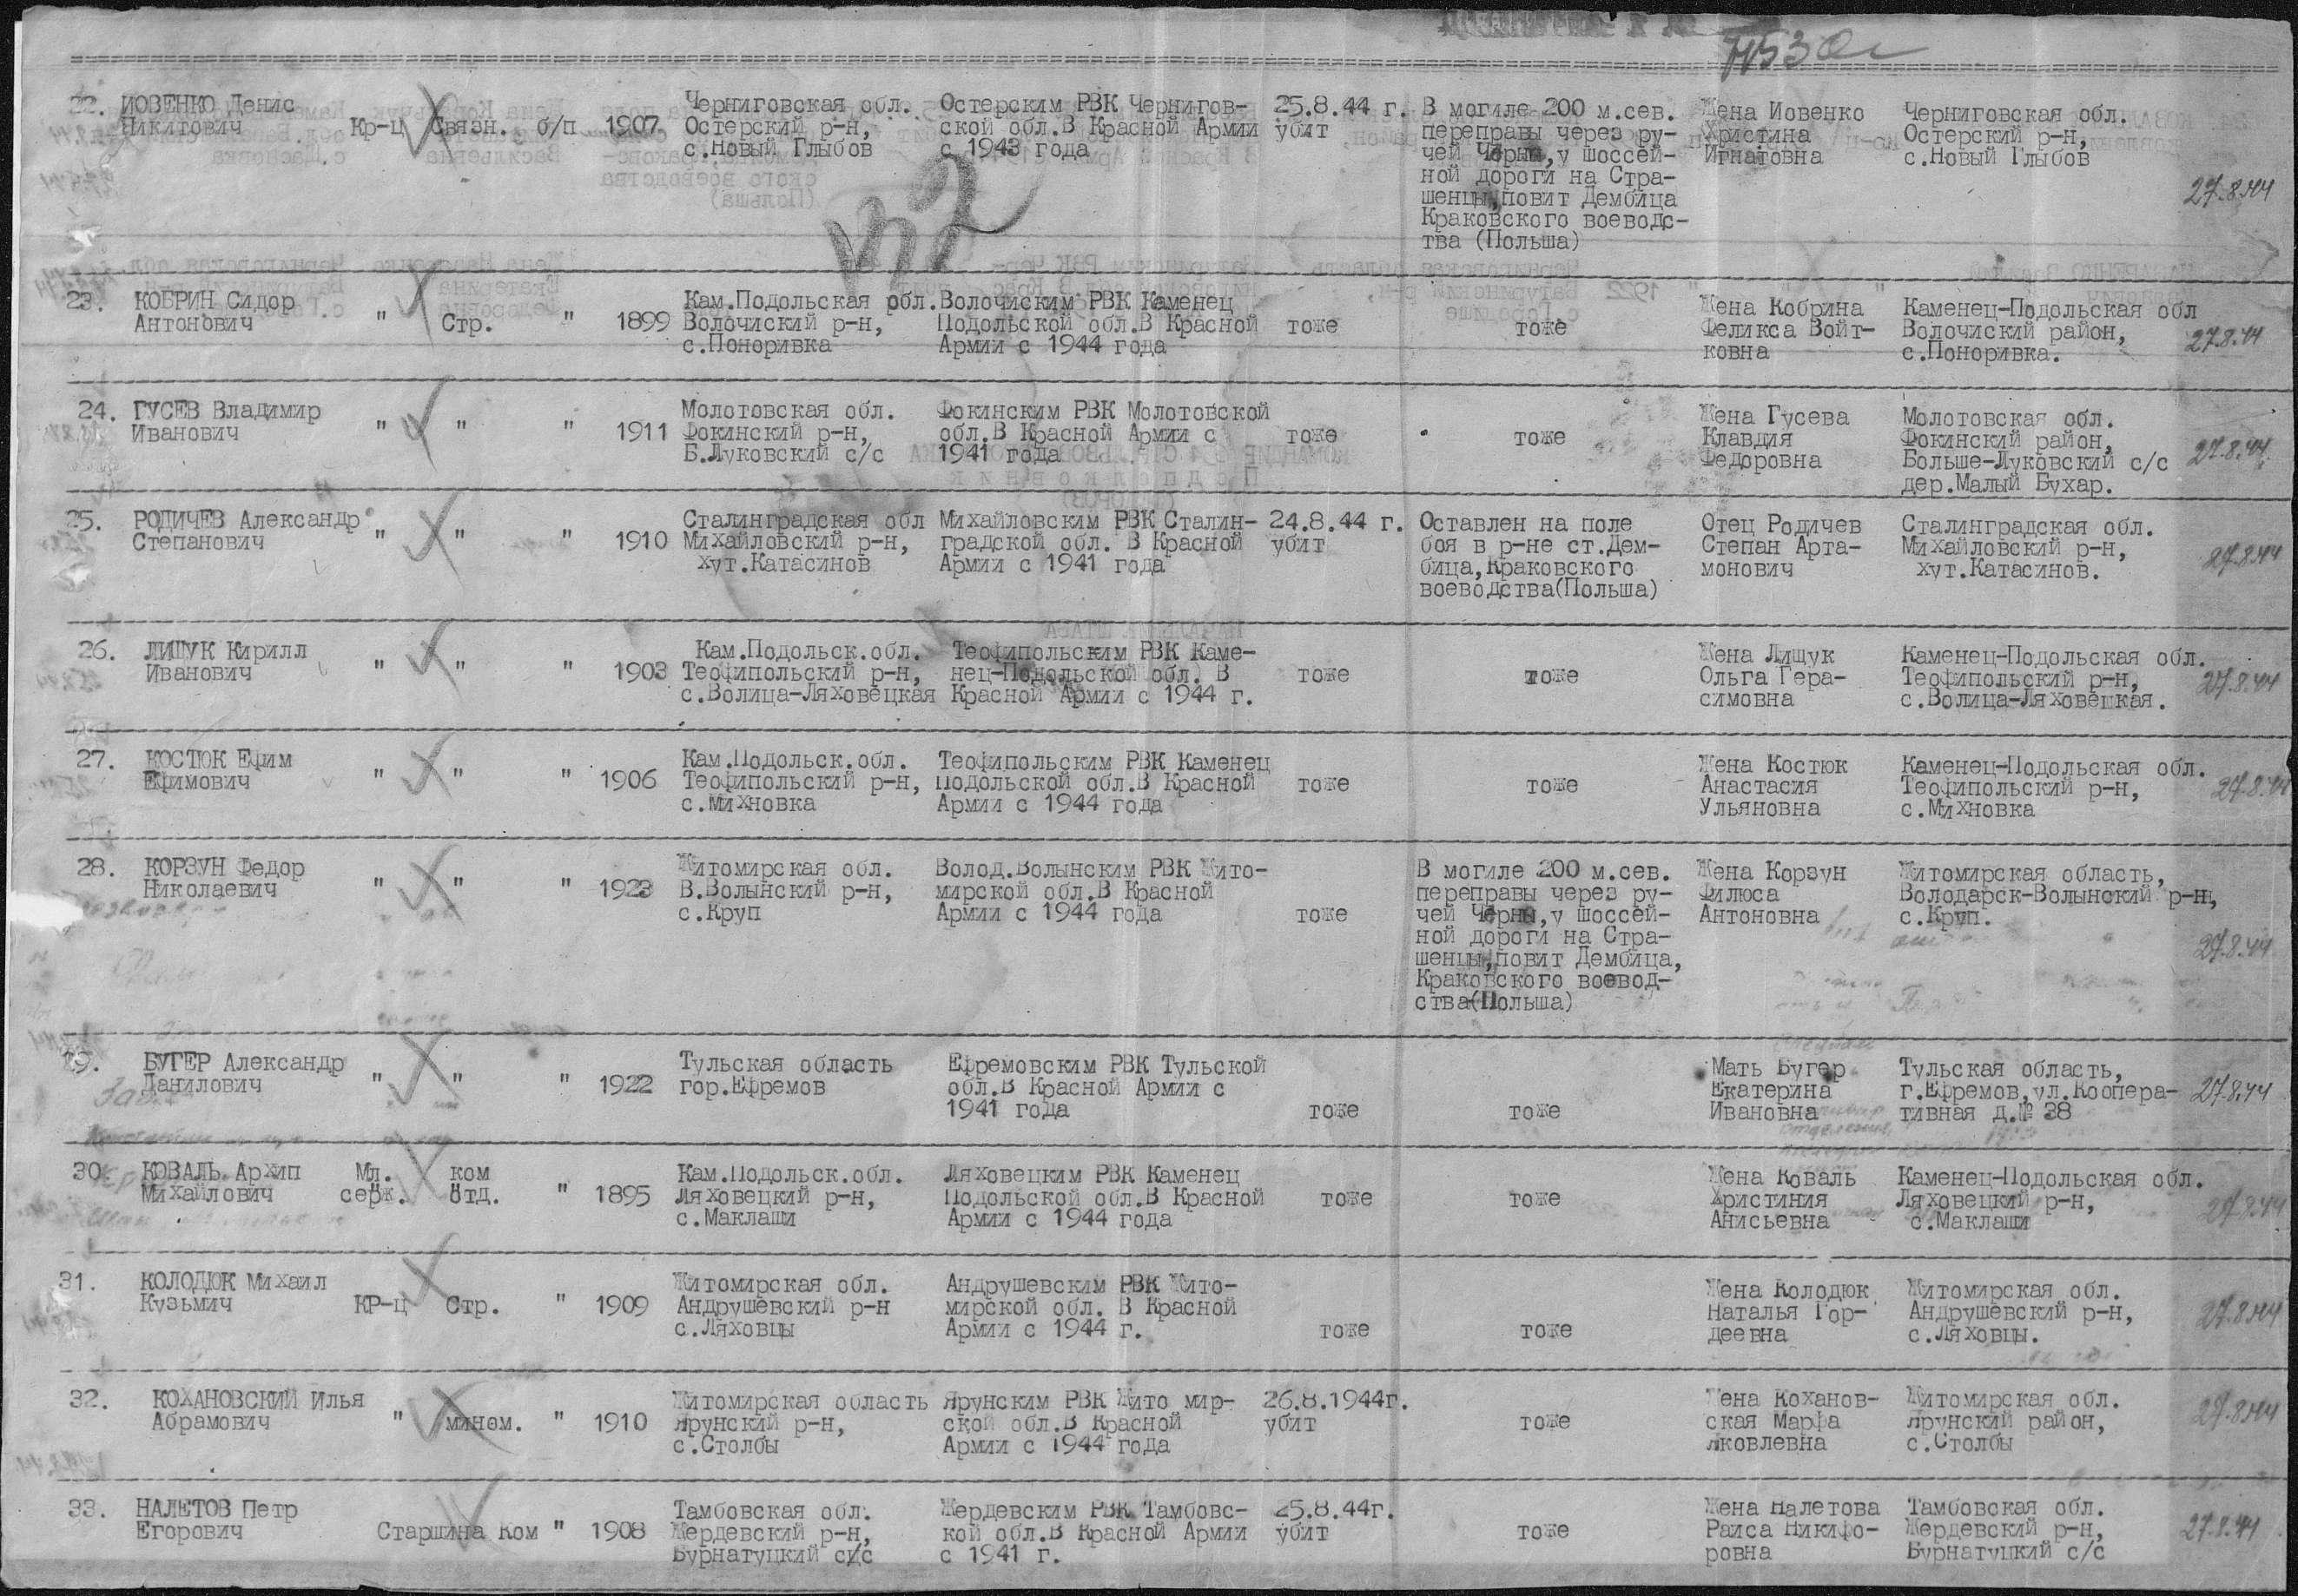 22. ИОВЕНКО Денис
Никитович Кр-ц Связн. б/п 1907
Черниговская обл.
Остерский р-н,
с.Новый Глыбов
Остерским РВК Чернигов-
ской обл.В Красной Армии
с 1943 года
25.8.44 г.
убит
В могиле 200 м.сев.
переправы через ру-
чей Черны,у шоссей-
ной дороги на Стра-
шенцы,повит Дембица
Краковского воеводс-
тва (Польша)
Жена Иовенко
Христина
Игнатовна
Черниговская обл.
Остерский р-н,
с.Новый Глыбов
27.8.44
23. КОБРИН Сидор
Антонович " Стр. " 1899
Кам.Подольская обл.
Волочиский р-н,
с.Поноривка
Волочиским РВК Каменец
Подольской обл.В Красной
Армии с 1944 года
тоже
тоже
Жена Кобрина
Феликса Войт-
ковна
Каменец-Подольская обл
Волочиский район,
с.Поноривка.
27.8.44
24. ГУСЕВ Владимир
Иванович " " " 1911
Молотовская обл.
Фокинский р-н,
Б.Луковский с/с
Фокинским РВК Молотовской
обл.В Красной Армии с
1941 года
тоже
тоже
Жена Гусева
Клавдия
Федоровна
Молотовская обл.
Фокинский район,
Больше-Луковский с/с
дер.Малый Бухар.
27.8.44
25. РОДИЧЕВ Александр
Степанович " " " 1910
Сталинградская обл
Михайловский р-н,
хут.Катасинов
Михайловским РВК Сталин-
градской обл. В Красной
Армии с 1941 года
24.8.44 г.
убит
Оставлен на поле
боя в р-не ст.Дем-
бица,Краковского
воеводства(Польша)
Отец Родичев
Степан Арта-
монович
Сталинградская обл.
Михайловский р-н,
хут.Катасинов.
27.8.44
26. ЛИЩУК Кирилл
Иванович " " " 1903
Кам.Подольск.обл.
Теофипольский р-н,
с.Волица-Ляховецкая
Теофипольским РВК Каме-
нец-Подольской обл. В
Красной Армии с 1944 г.
тоже
тоже
Жена Лищук
Ольга Гера-
симовна
Каменец-Подольская обл.
Теофипольский р-н,
с.Волица-Ляховецкая.
27.8.44
27. КОСТЮК Ефим
Ефимович " " " 1906
Кам.Подольск.обл.
Теофипольский р-н,
с.Михновка
Теофипольским РВК Каменец
Подольской обл.В Красной
Армии с 1944 года
тоже
тоже
Жена Костюк
Анастасия
Ульяновна
Каменец-Подольская обл.
Теофипольский р-н,
с.Михновка
27.8.44
28. КОРЗУН Федор
Николаевич " " " 1923
Житомирская обл.
В.Волынский р-н,
с.Круп
Волод.Волынским РВК Жито-
мирской обл.В Красной
Армии с 1944 года
тоже
В могиле 200 м.сев.
переправы через ру-
чей Черны,у шоссей-
ной дороги на Стра-
шенцы,повит Дембица,
Краковского воевод-
ства(Польша)
Жена Корзун
Филюса
Антоновна
Житомирская область,
Володарск-Волынский р-н,
с.Круп.
27.8.44
29. БУГЕР Александр
Данилович " " " 1922
Тульская область
гор.Ефремов
Ефремовским РВК Тульской
обл.В Красной Армии с
1941 года
тоже
тоже
Мать Бугер
Екатерина
Ивановна
Тульская область,
г.Ефремов,ул.Коопера-
тивная д.№ 38
27.8.44
30. КОВАЛЬ Архип Мл. ком
Михайлович серж. отд. " 1895
Кам.Подольск.обл.
Ляховецкий р-н,
с.Маклаши
Ляховецким РВК Каменец
Подольской обл.В Красной
Армии с 1944 года
тоже
тоже
Жена Коваль
Христиния
Анисьевна
Каменец-Подольская обл.
Ляховецкий р-н,
с.Маклаши
27.8.44
31. КОЛОДЮК Михаил
Кузьмич КР-ц Стр. " 1909
Житомирская обл.
Андрушевский р-н
с.Ляховцы
Андрушевским РВК Жито-
мирской обл. В Красной
Армии с 1944 г.
тоже
тоже
Жена Колодюк
Наталья Гор-
деевна
Житомирская обл.
Андрушевский р-н,
с.Ляховцы.
27.8.44
32. КОХАНОВСКИЙ Илья
Абрамович " мином. " 1910
Житомирская область
Ярунский р-н,
с.Столбы
Ярунским РВК Жито мир-
ской обл.В Красной
Армии с 1944 года
26.8.1944г.
убит
тоже
Жена Коханов-
ская Марфа
Яковлевна
Житомирская обл.
Ярунский район,
с.Столбы
27.8.44
33. НАЛЕТОВ Петр
Егорович Старшина Ком " 1908
Тамбовская обл.
Жердевский р-н,
Бурнатуцкий с/с
Жердевским РВК Тамбовс-
кой обл.В Красной Армии
с 1941 г.
25.8.44г.
убит
тоже
Жена Налетова
Раиса Никифо-
ровна
Тамбовская обл.
Жердевский р-н,
Бурнатуцкий с/с
27.8.44